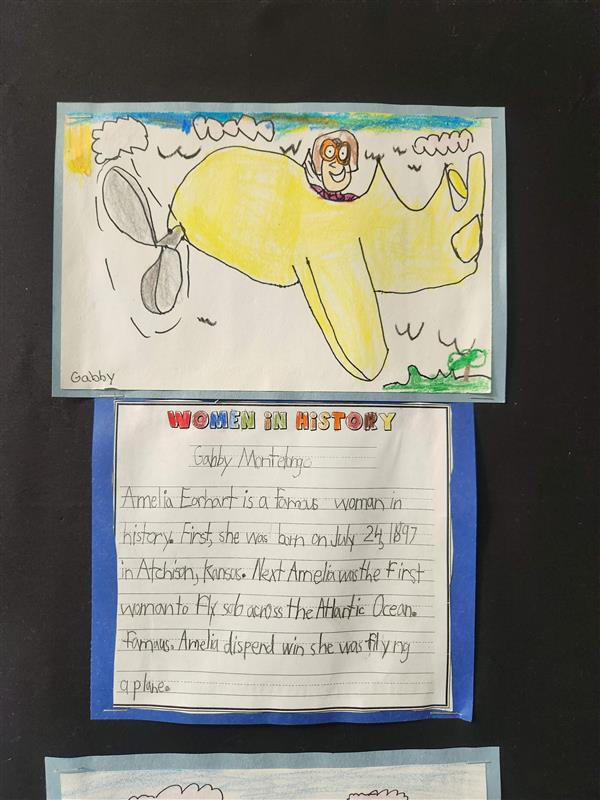 Gabby
WOMEN IN HISTORY
Gabby Montelongo
Amelia Earhart is a famous woman in
history. First, she was born on July 24, 1897
in Atchison, Kansas. Next Amelia was the first
woman to Fly solo across the Atlantic Ocean.
famaus. Amelia dispend win she was flyng
a plane.